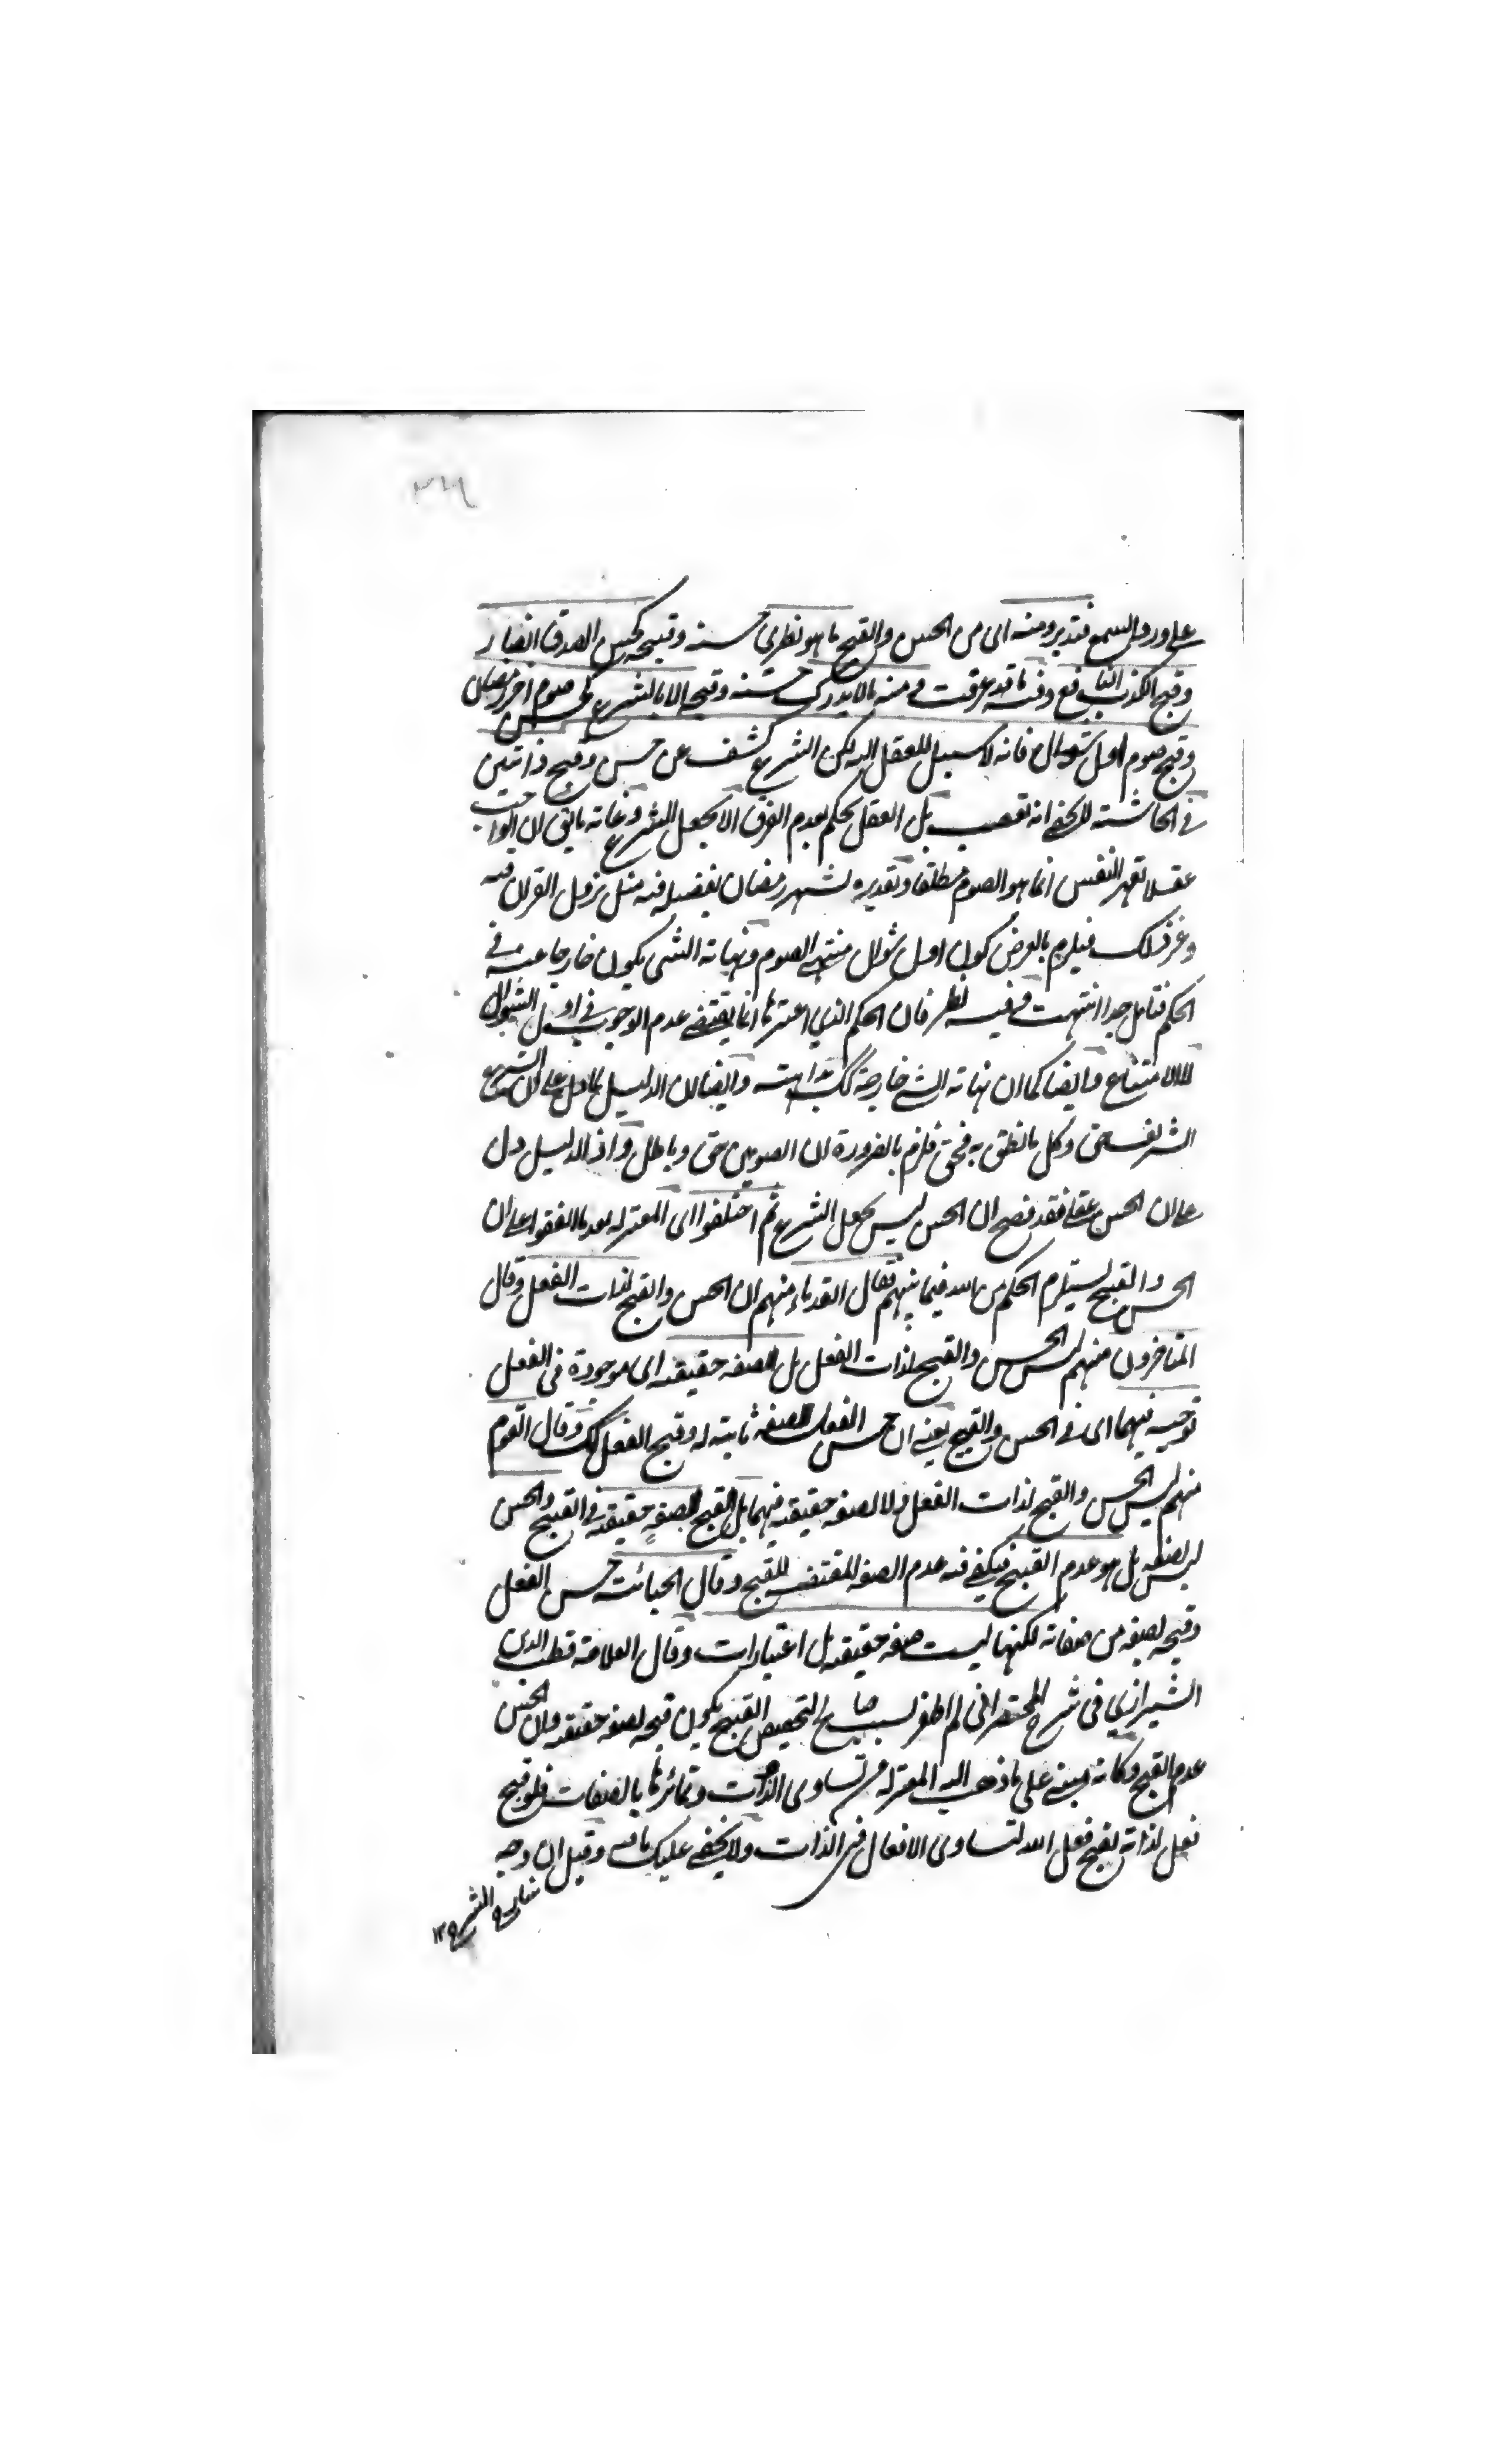 على ورود السمع فتدبر ومنه اى من الحسن والقبح ما هو نظرى حسنه وقبحه كحسن الصدق الضار
وقبح الكذب النافع وفيه ما قد عرفت ومنه ما لا يدرك حسنه وقبحه الا بالشرع كحسن صوم اخر رمضان
وقبح صوم اول شوال فانه لا سبيل للعقل اليه لكن الشرع كشف عن حسن وقبح ذاتيين
فى الحاشية لا يخفى انه تعصب بل العقل يحكم بعدم الفرق الا بجعل الشرع وغاية ما يق ان الواجب
عقلا لقهر النفس انما هو الصوم مطلقا وتقديره لشهر رمضان لفضيلة فيه مثل نزول القران فيه
وغير ذلك فيلزم بالعرض كون اول شوال منتهى الصوم ونهاية الشى يكون خارجا عنه فى
الحكم فتامل جدا انتهت وفيه نظر فان الحكم الذى اعتبرها انما يقتضى عدم الوجوب فى اول الشوال
لا الامتناع وايضا كما ان نهاية الشى خارجة كك بدايته وايضا لان الدليل لما دل على ان الشرع
الشريف حق وكل ما نطق به فحق فلزم بالضرورة ان الصومين حق وباطل واذ الدليل دل
على ان الحسن عقلى فقد نصح ان الحسن ليس بجعل الشرع ثم اختلفوا اى المعتزلة بعد ما اتفقوا على ان
الحسن والقبح يستلزم الحكم من الله فيما بينهم فقال القدماء منهم ان الحسن والقبح لذات الفعل وقال
المتاخرون منهم ليس الحسن والقبح لذات الفعل بل لصفة حقيقية اى موجودة فى الفعل
توجبه فيهما اى فى الحسن والقبح يعنى ان حسن الفعل لصفة ثابتة له وقبح الفعل كك وقال القوم
منهم ليس الحسن والقبح لذات الفعل ولا لصفة حقيقية فيهما بل القبح لصفة حقيقية فى القبيح والحسن
ليس لصفة بل هو عدم القبح فيكفى فيه عدم الصفة المقتضية للقبح وقال الجبائية حسن الفعل
وقبحه لصفة من صفاته لكنها ليست صفة حقيقية بل اعتبارات وقال العلامة قطب الدين
الشيرازى فى شرح المختصر انى لم اظفر بسبب صالح لتخصيص القبيح بكون قبحه لصفة حقيقية وان الحسن
عدم القبح وكانه مبنى على ما ذهب اليه المعتزلة من تساوى الذوات وتمايزها بالصفات فلو قبح
فعل لذاته لقبح فعل الله لتساوى الافعال فى الذات ولا يخفى عليك ما فيه وقيل ان وجه